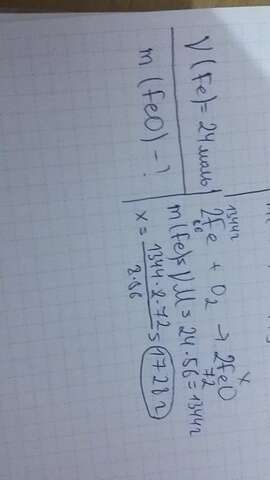 ν(Fe)=24моль
m(FeO)-?
1344г x
2Fe + O₂ → 2FeO
56 72
m(Fe)=νM=24·56=1344г
x = 1344·2·72 = 1728г
2·56